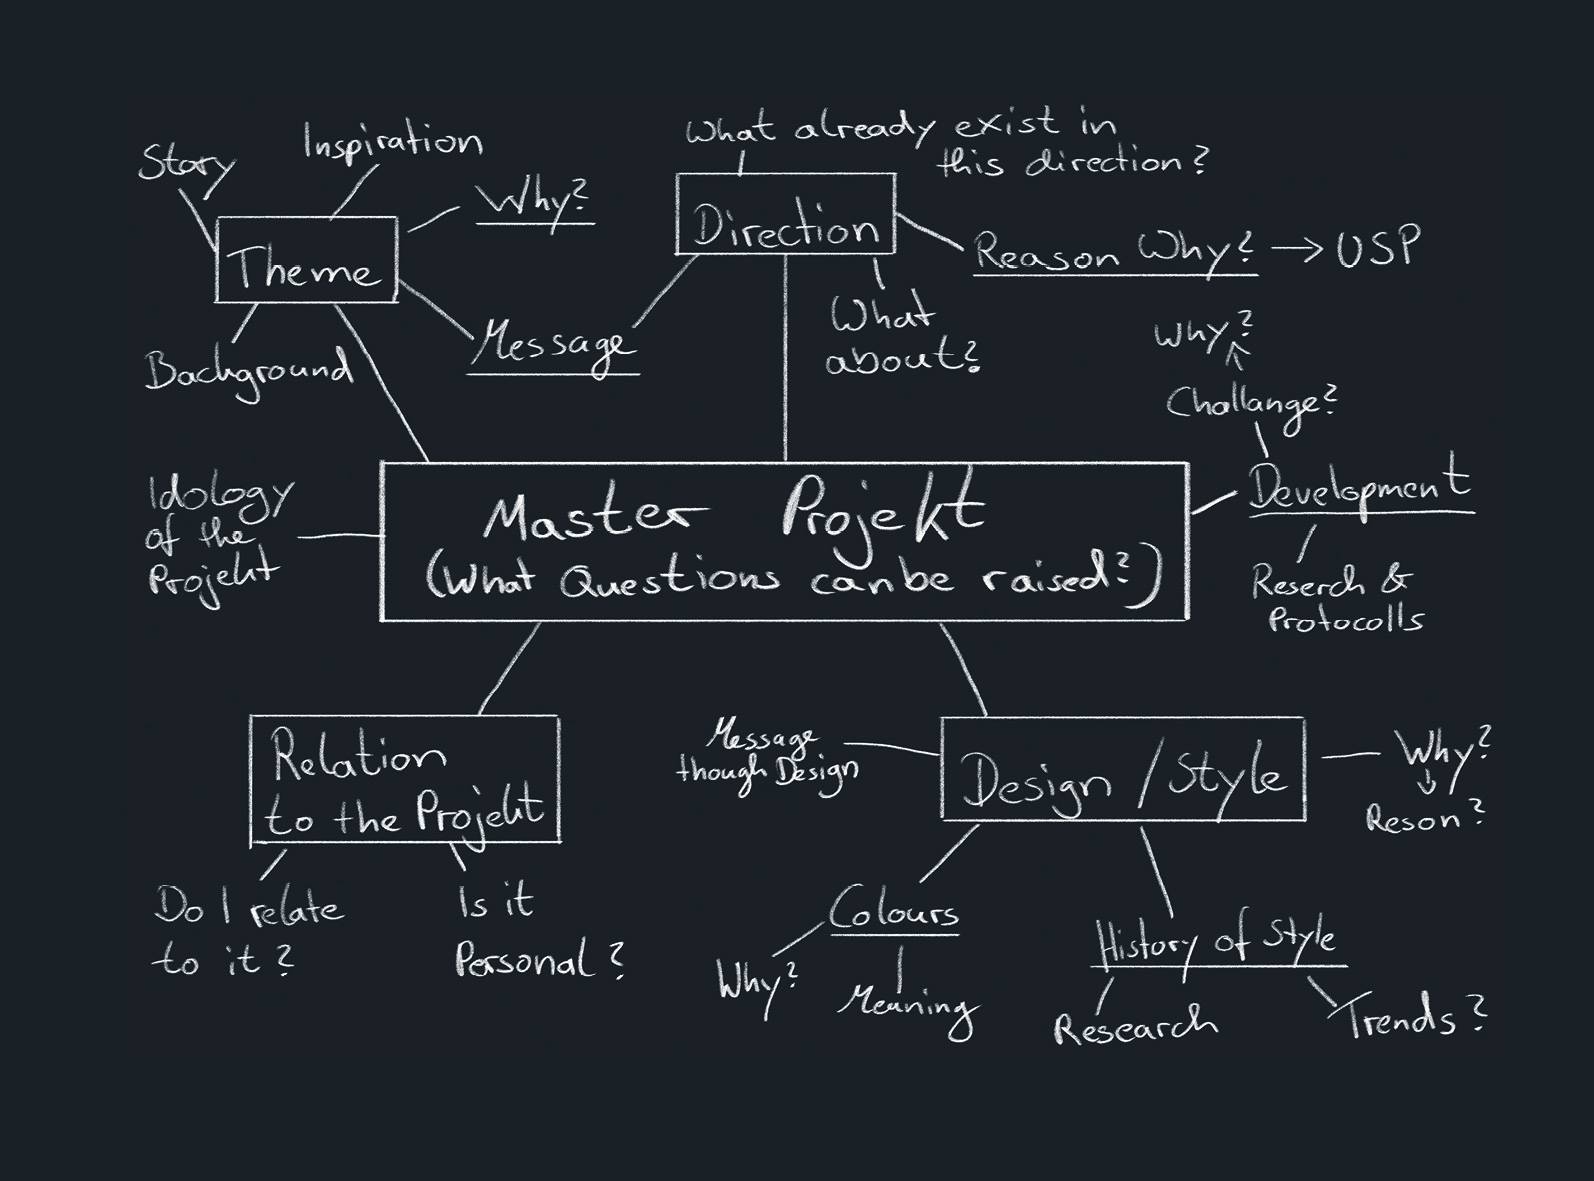 Story
Inspiration
Why?
Theme
Background
Message
What already exist in
this direction?
Direction
Reason Why? → USP
What
about?
Why?
Challange?
Development
Reserch &
Protocolls
Idology
of the
Projekt
Master Projekt
(What Questions can be raised?)
Relation
to the Projekt
Do I relate
to it?
Is it
Personal?
Message
though Design
Design / Style
Why?
Reson?
Colours
Why?
Meaning
History of Style
Research
Trends?